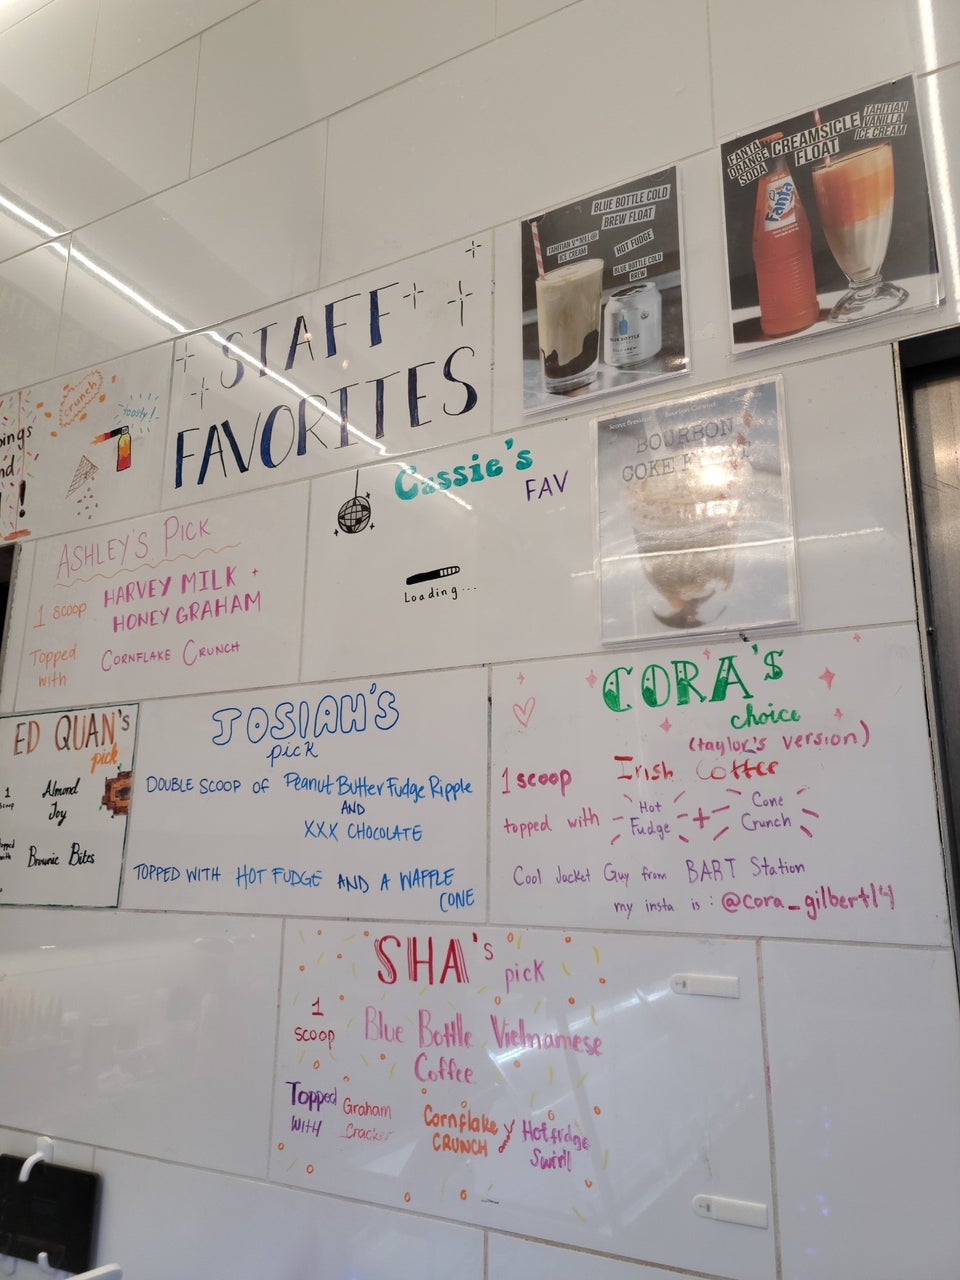 FANTA
ORANGE
SODA
CREAMSICLE
FLOAT
TAHITIAN
VANILLA
ICE CREAM
Fanta
BLUE BOTTLE COLD
BREW FLOAT
TAHITIAN V*NILL@
ICE CREAM
HOT FUDGE
BLUE BOTTLE COLD
BREW
BLUE BOTTLE
STAFF
FAVORITES
crunch
toasty!
ings
nd
!
Cassie's
FAV
Loading...
Secret Breakfast
Bourbon Caramel
BOURBON
COKE
ASHLEY'S PICK
1 scoop
HARVEY MILK +
HONEY GRAHAM
Topped
with
CORNFLAKE CRUNCH
ED QUAN's
pick
1
scoop
Almond
Joy
Brownie Bites
JOSIAH'S
pick
DOUBLE SCOOP OF Peanut Butter Fudge Ripple
AND
XXX CHOCOLATE
TOPPED WITH HOT FUDGE AND A WAFFLE
CONE
CORA'S
choice
(taylor's version)
1 scoop Irish Coffee
topped with Hot Fudge + Cone Crunch
Cool Jacket Guy from BART Station
my insta is: @cora_gilbert14
SHA's
pick
1
scoop
Blue Bottle Vietnamese
Coffee
Topped
WITH
Graham
Cracker
Cornflake
CRUNCH
Hot fridge
Swirll